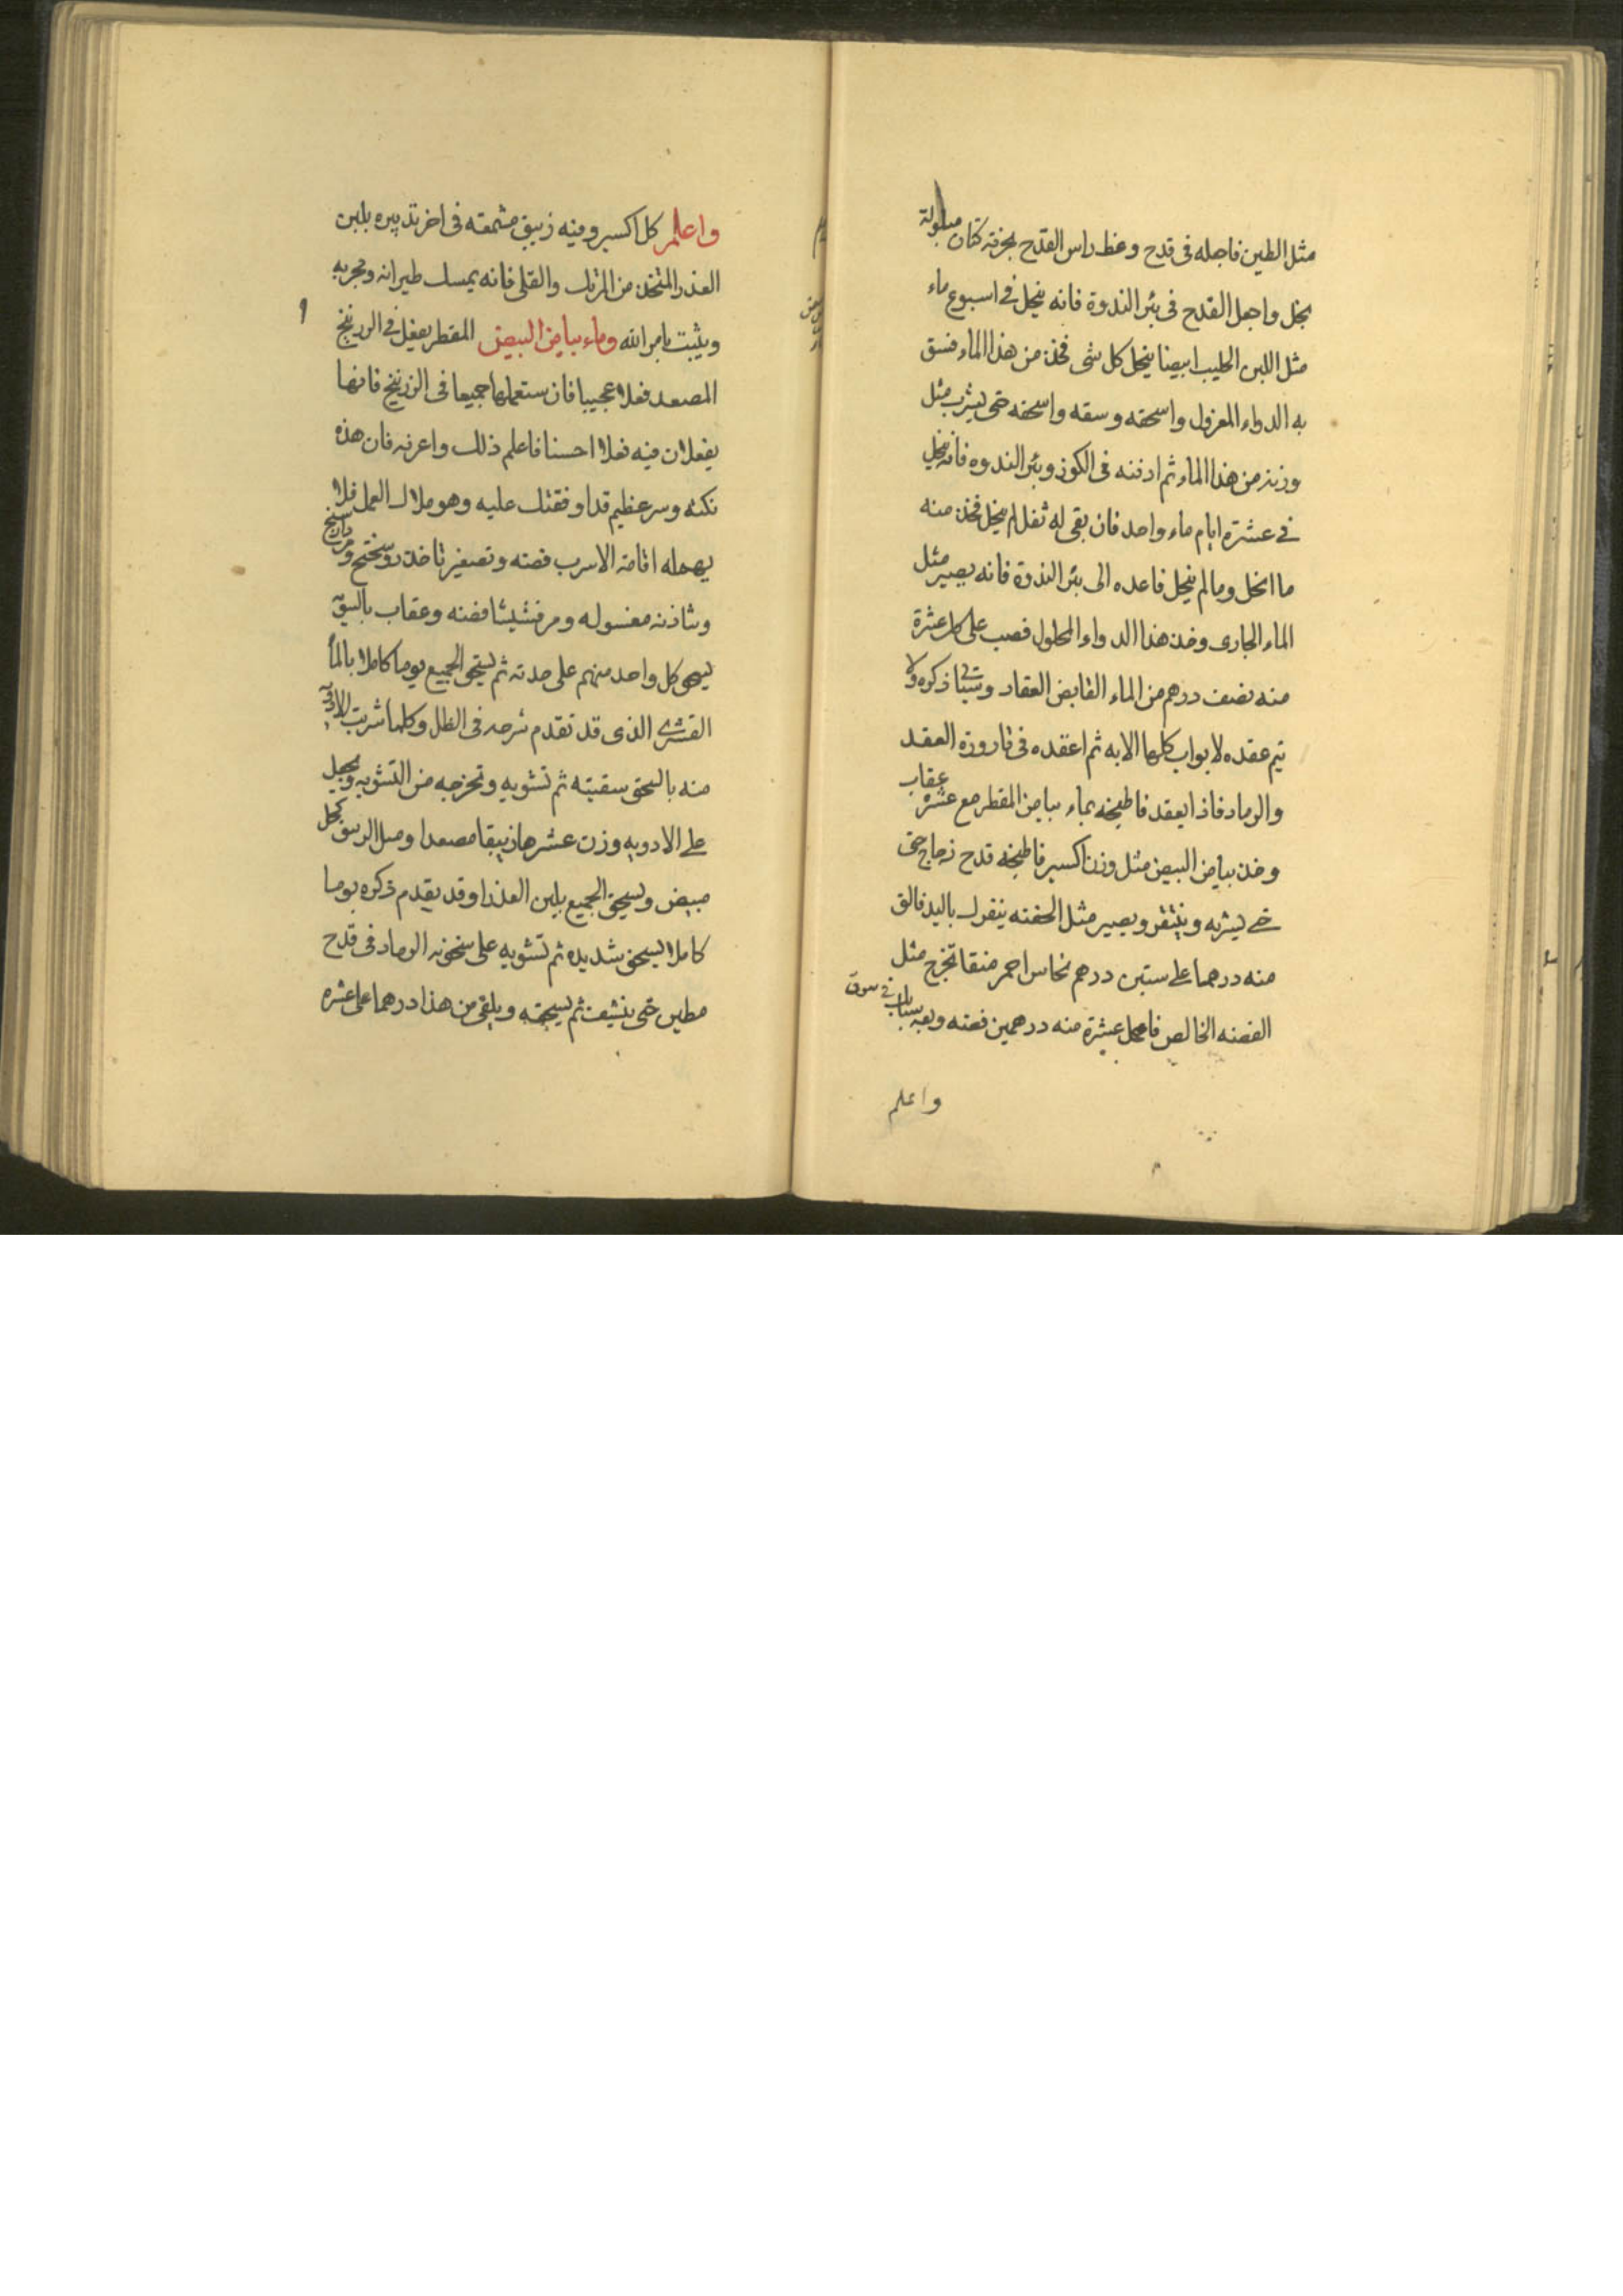 مثل الطين فاجعله فى قدح وغط راس القدح بخرقة كتان مبلولة
بخل واجعل القدح فى بئر الندوة فانه ينحل فى اسبوع ماء
مثل اللبن الحليب ابيضا ينحل كل شى فخذ من هذا الماء فسق
به الدواء المعزول واسحقه وسقه واسحقه حتى يشرب مثل
وزنه من هذا الماء ثم ادفنه فى الكوز وبئر الندوه فانه ينحل
فى عشرة ايام ماء واحد فان بقى له ثفل لم ينحل فخذ منه
ما انحل وما لم ينحل فاعده الى بئر الندوة فانه يصير مثل
الماء الجارى وخذ هذا الدواء المحلول فصب على كل عشرة
منه نصف درهم من الماء القابض العقاد وسياتى ذكره ولا
يتم عقده لابواب كلها الا به ثم اعقده فى قارورة العقد
والرماد فاذا يعقد فاطبخه بماء بياض المقطر مع عشره عقاب
وخذ بياض البيض مثل وزن اكسير فاطبخه قدح زجاج حتى
حتى يشربه وينتقر ويصير مثل الحفته ينفرك باليد فالق
منه درهما على ستين درهم نحاس احمر منقا تخرج مثل
الفضه الخالص فاعمل عشرة منه درهمين فضه وبعه فى سوق
واعلم
واعلم كل اكسير وفيه زيبق مشمعته فى اخر تدبيره بلبن
العذرا المتخذ من المرتك والقلى فانه يمسك طيرانه وبحربه
ويثبت بامر الله وماء بياض البيض المقطر يفعل فى الزرنيخ
المصعد فعلا عجيبا فان ستعملها جميعا فى الزرنيخ فانها
يفعلان فيه فعلا احسنا فاعلم ذلك واعرفه فان هذه
نكته وسر عظيم قد اوقفتك عليه وهو ملاك العمل فلا
يهمله اقامة الاسرب فضه وتصغير تاخذ روسختج ومرداسنج
وشاذنه مغسوله ومرقشيشا فضه وعقاب بالسويه
يسحق كل واحد منهم على حدته ثم يسحق الجميع يوما كاملا بالماء
القشرى الذى قد تقدم شرحه فى الظل وكلما شربت الادويه
منه بالسحق سقيته ثم تشويه وتخرجه من التشويه وتجعل
على الادويه وزن عشرها زيبقا مصعدا ومثل الزيبق كحل
مبيض ويسحق الجميع بلبن العذرا وقد يقدم ذكره يوما
كاملا يسحق شديده ثم تشويه على سخونه الرماد فى قدح
مطين حتى ينشف ثم يسحقه ويلقى من هذا درهما على عشره